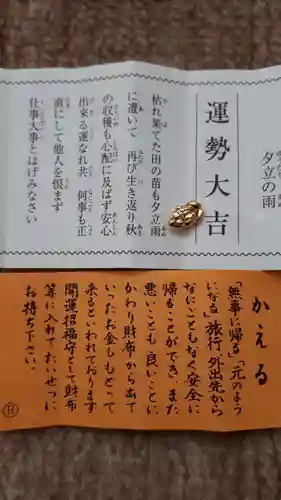 夕立の雨
運勢大吉
枯れ果てた田の苗も夕立雨
に遭いて　再び生き返り秋
の収穫も心配に及ばず安心
出来る運なれ共　何事も正
直にして他人を恨まず
仕事大事とはげみなさい
かえる
「無事に帰る」「元のよう
になる」旅行、外出先から
なにごともなく安全に
帰ることができ、また
悪いことも良いことに
かわり財布から出て
いったお金ももどって
来るといわれております
開運招福守として財布
等に入れてたいせつに
お持ち下さい。